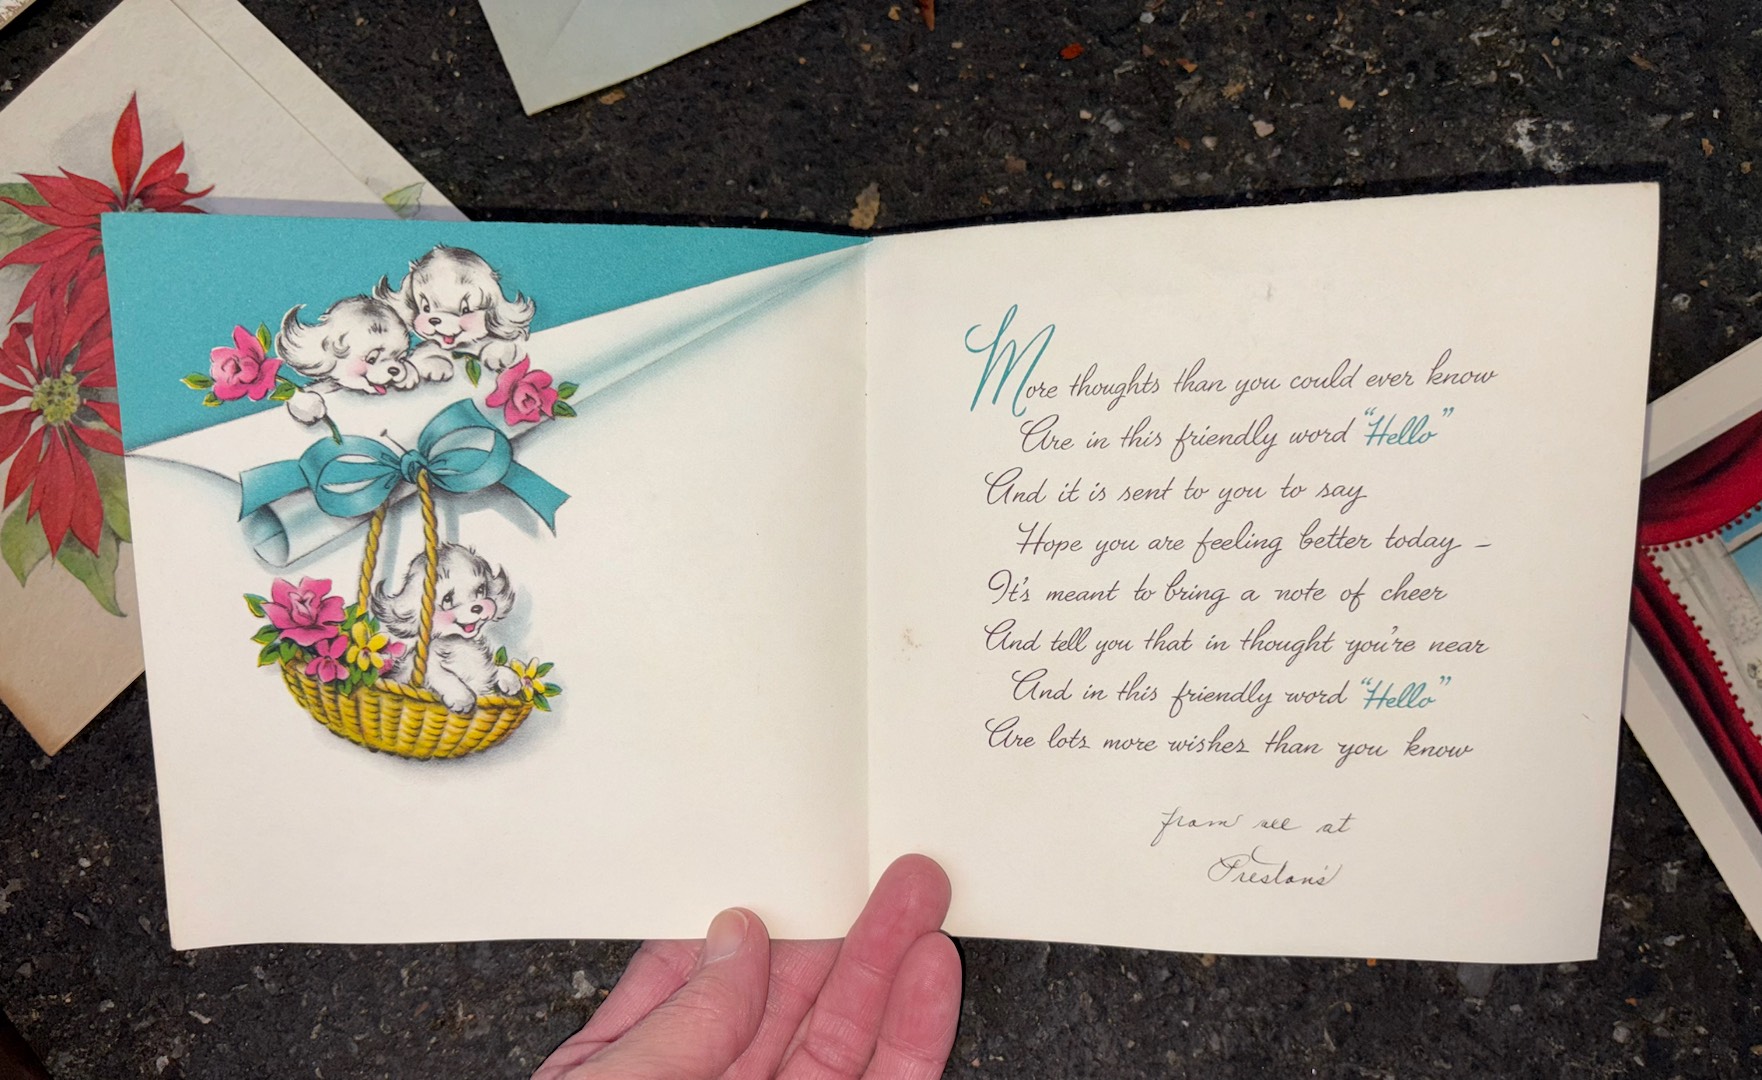 More thoughts than you could ever know
Are in this friendly word "Hello"
And it is sent to you to say
Hope you are feeling better today –
It's meant to bring a note of cheer
And tell you that in thought you're near
And in this friendly word "Hello"
Are lots more wishes than you know
from all at
Preston's